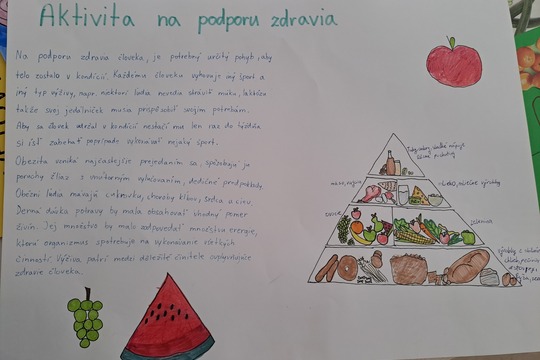 Aktivita na podporu zdravia
Na podporu zdravia človeka, je potrebný určitý pohyb, aby
telo zostalo v kondícii. Každému človeku vyhovuje iný šport a
iný typ výživy, napr. niektorí ľudia nevedia stráviť múku, laktózu
takže svoj jedálniček musia prispôsobiť svojim potrebám.
Aby sa človek udržal v kondícii nestačí mu len raz do týždňa
si ísť zabehať poprípade vykonávať nejaký šport.
Obezita vzniká najčastejšie prejedaním sa, spôsobujú ju
poruchy žliaz s vnútorným vylučovaním, dedičné predpoklady.
Obézni ľudia mávajú cukrovku, choroby kĺbov, srdca a ciev.
Denná dávka potravy by mala obsahovať vhodný pomer
živín. Jej množstvo by malo zodpovedať množstvu energie,
ktorú organizmus spotrebuje na vykonávanie všetkých
činností. Výživa patrí medzi dôležité činitele ovplyvňujúce
zdravie človeka.
sladké nápoje
mäso, vajcia
mlieko, mliečne výrobky
ovocie
zelenina
výrobky z
chlieb, pečivo